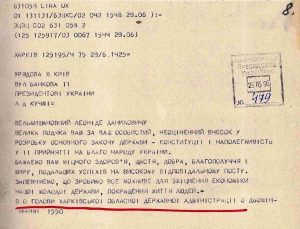 8.
631058 LIRA UX
ХАРКІВ 125195/4 75 28/6 1425=
УРЯДОВА В КИЇВ
ВУЛ БАНКОВА 11
ПРЕЗИДЕНТОВІ УКРАЇНИ
Л Д КУЧМІ=
ПРЕЗИДЕНТА
№ 479
ВЕЛЬМИШАНОВНИЙ ЛЕОНІДЕ ДАНИЛОВИЧУ
ВЕЛИКА ПОДЯКА ВАМ ЗА ВАШ ОСОБИСТИЙ, НЕОЦІНЕННИЙ ВНЕСОК У
РОЗРОБКУ ОСНОВНОГО ЗАКОНУ ДЕРЖАВИ - КОНСТИТУЦІЇ І НАПОЛЕГЛИВІСТЬ
У ЇЇ ПРИЙНЯТТІ НА БЛАГО НАРОДУ УКРАЇНИ.
БАЖАЄМО ВАМ МІЦНОГО ЗДОРОВ'Я, ЩАСТЯ, ДОБРА, БЛАГОПОЛУЧЧЯ І
МИРУ, ПОДАЛЬШИХ УСПІХІВ НА ВИСОКОМУ ВІДПОВІДАЛЬНОМУ ПОСТУ.
ЗАПЕВНЯЄМО, ЩО ЗРОБИМО ВСЕ МОЖЛИВЕ ДЛЯ ЗМІЦНЕННЯ ЕКОНОМІКИ
НАШОЇ МОЛОДОЇ ДЕРЖАВИ, ПОКРАЩЕННЯ ЖИТТЯ ЛЮДЕЙ.=
В О ГОЛОВИ ХАРКІВСЬКОЇ ОБЛАСНОЇ ДЕРЖАВНОЇ АДМІНІСТРАЦІЇ О
1550